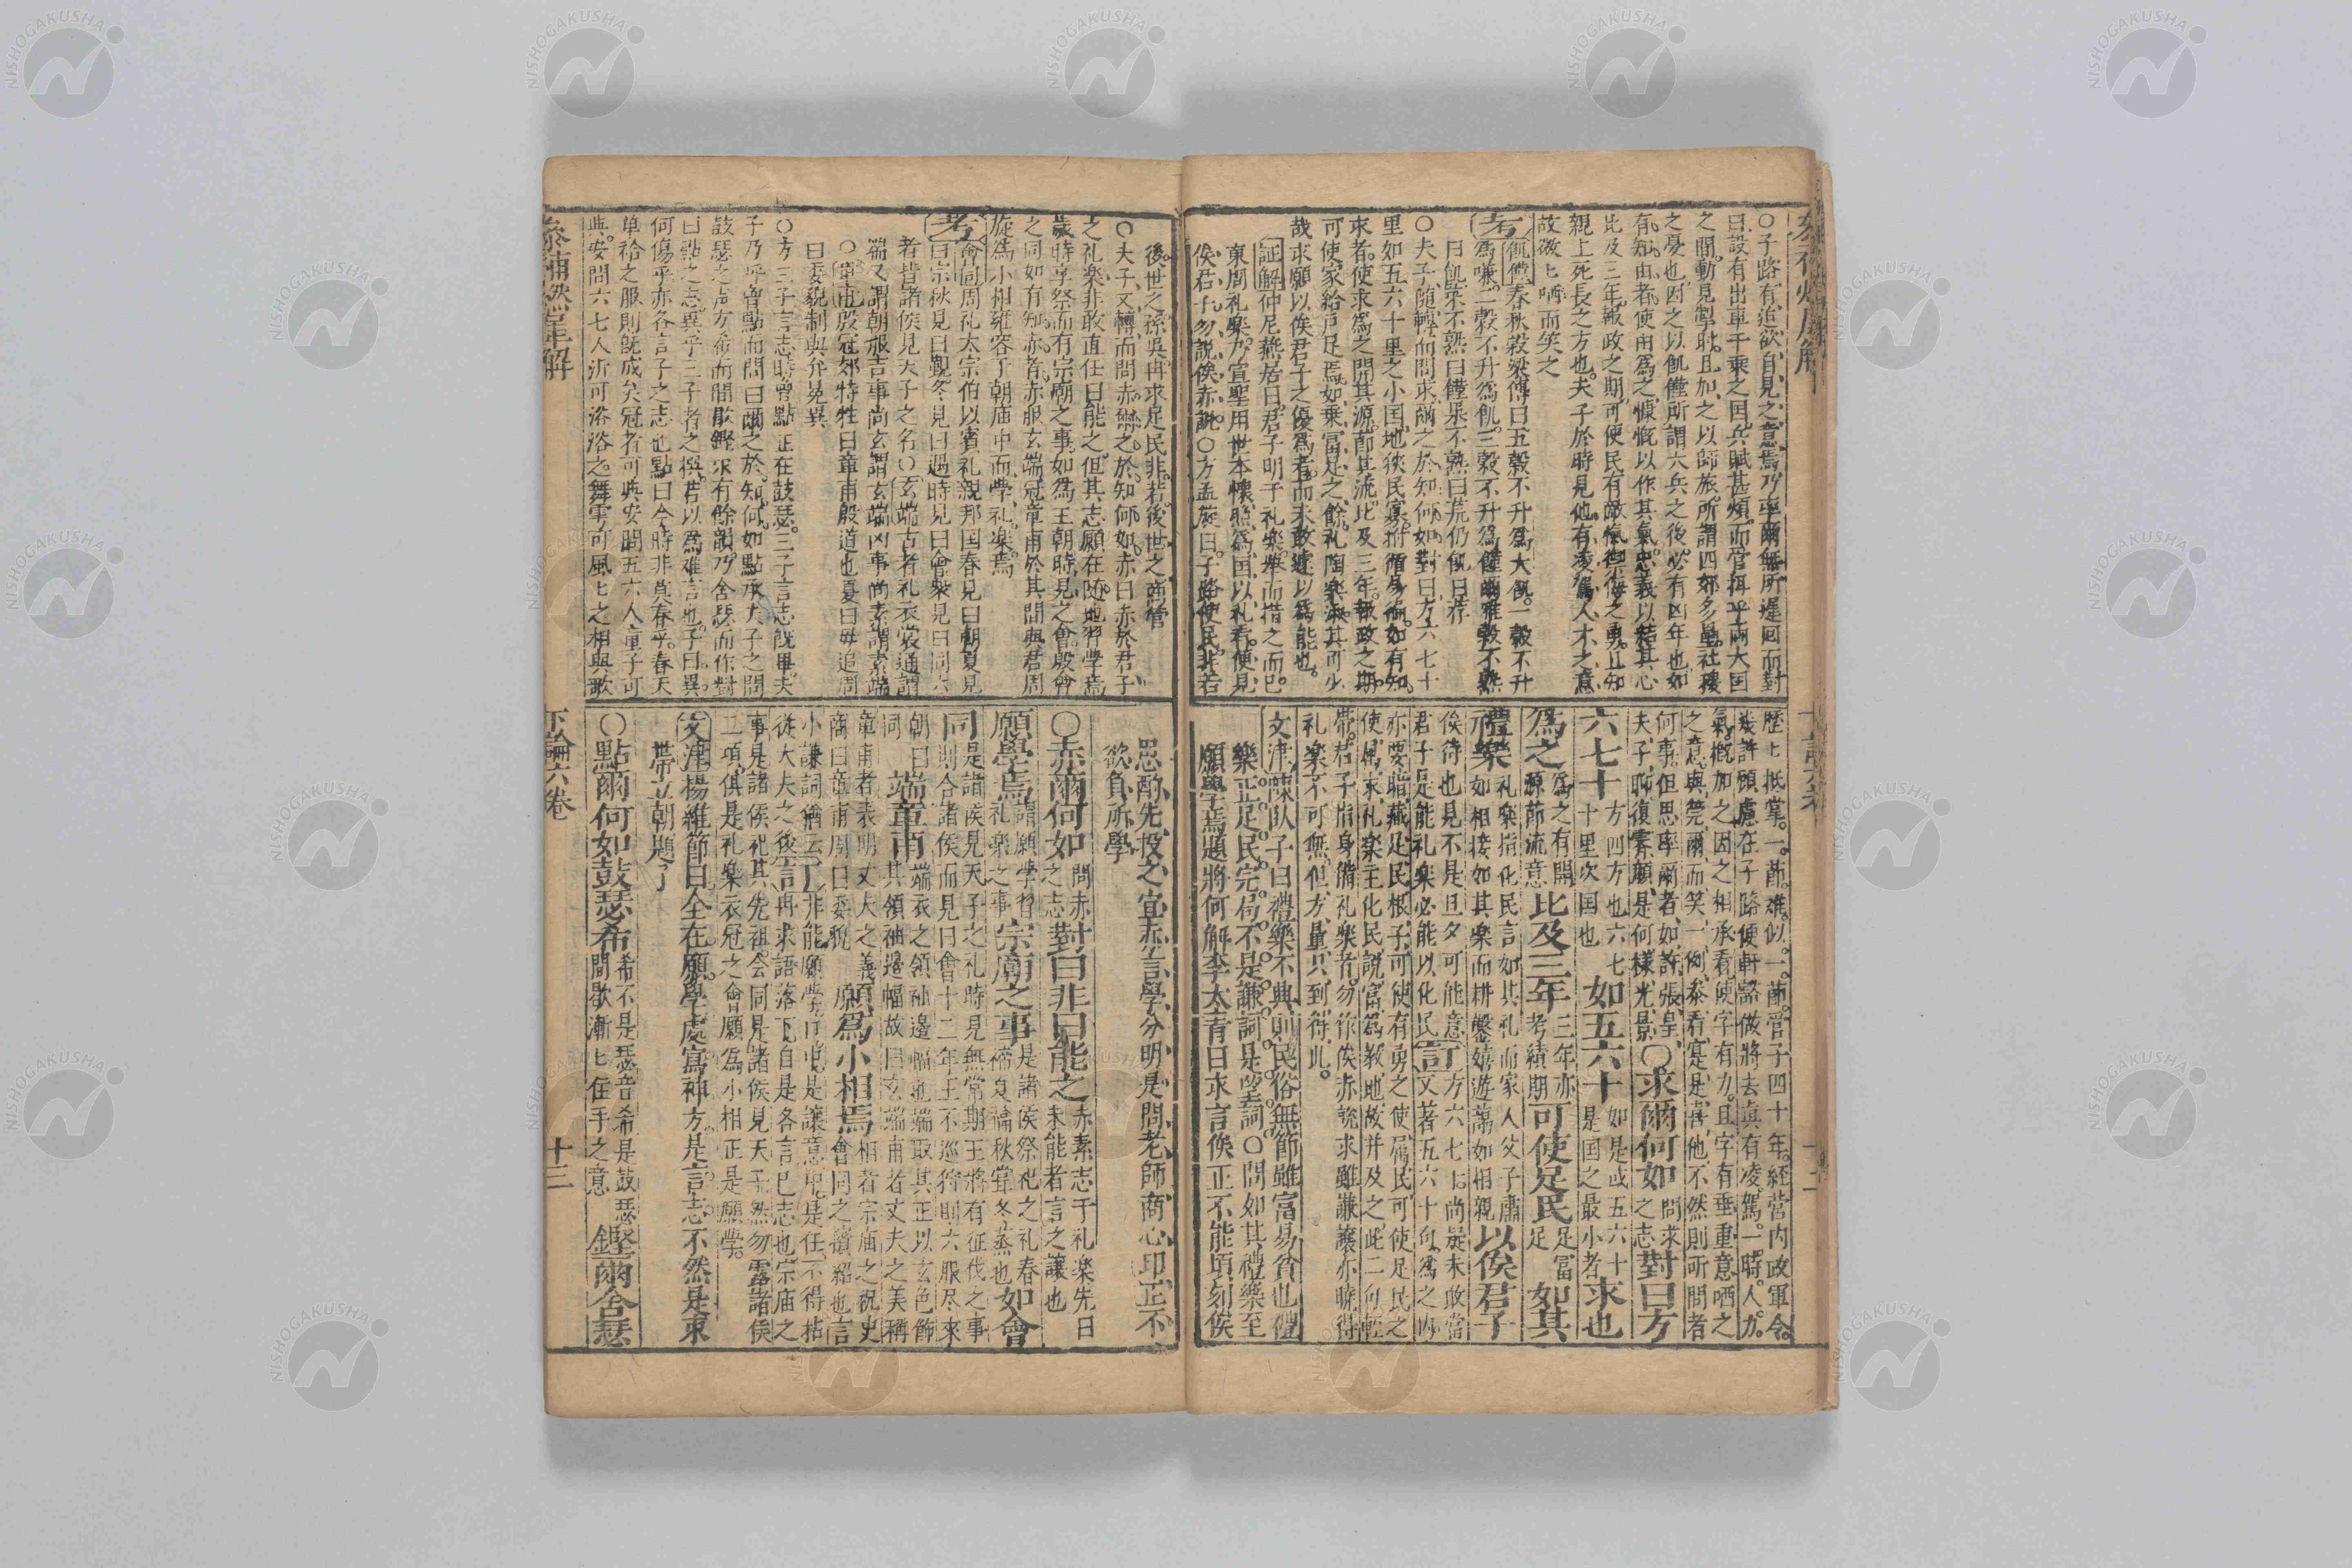 〇子路有追欲自見之意焉乃率爾無所遲回而對
曰設有出車千乘之国兵賦甚煩而管攝乎兩大国
之間動見掣肘且加之以師旅所謂四郊多壘社稷
之憂也因之以飢饉所謂大兵之後必有凶年也如
有知由者使由爲之慷慨以作其氣忠義以結其心
比及三年報政之期可使民有敵愾禦侮之勇且知
親上死長之方也夫子於時見他有凌駕人才之意
故微匕哂而笑之
考飢饉春秋穀梁傳曰五穀不升爲大飢一穀不升
爲嗛二穀不升爲飢三穀不升爲饉爾雅穀不熟
曰飢蔬不熟曰饉果不熟曰荒仍飢曰荐
〇夫子隨轉而問求爾之於知何如對曰方六七十
里如五六十里之小国地狹民寡如有知
求者使求爲之開其源節其流比及三年報政之期
可使家給戶足焉如乗富足之餘礼陶樂淑其可少
哉求願以俟君子之優爲者而未敢遽以爲能也
証解仲尼燕居曰君子明于礼樂舉而措之而已
東周礼樂乃宣聖用世本懷照爲国以礼看便見
俟君子勿說俟赤說〇方孟旋曰子路使民非若
歷匕抵掌一節难似一節管子四十年経营内政軍令
幾許顧慮在子路便軒豁做將去真有凌駕一時人力
氣慨加之因之相承看使字有力且字有垂重意哂之
之意與莞爾而笑一例泰看寔是喜他不然則所問者
何事但思率爾者如許張皇〇求爾何如問求之志對曰方
夫子聊復霽顏是何樣光景
六七十方四方也六七十里次国也如五六十如是或五六十是国之最小者求也
爲之爲之有開源節流意比及三年三年亦考績期可使足民足富足如其
禮樂礼樂指化民言如其礼而家人父子肅如相接如其樂而耕鑿嬉遊藹如相親以俟君子
俟待也見不是旦夕可能意訂方六七十尚疑未敢當
君子是能礼樂必能以化民文著五六十句爲之内
亦要暗藏足民根子可使有勇之使属民可使足民之
使属求礼樂主化民說富爲教地故并及之此二句輕
帶君子指身備礼樂者勿作俟赤說求雖謙讓亦曉得
礼樂不可無但方量只到得此
文津陳队子曰禮樂不興則民俗無節雖富易貧也禮
樂正足民完局不是謙詞是望詞〇問如其禮樂至
願學焉題將何解李太青曰求言俟正不能頃刻俟
後世之孫吳冉求足民非若後世之商管
〇夫子又轉而問赤爾之於知何如赤曰赤於君子
之礼樂非敢直任曰能之但其志願在随地習學焉
歲時享祭而有宗廟之事如爲王朝時見之會殷會
之同如有知赤者赤服玄端冠章甫於其間與君周
旋爲小相雍容于朝庙中而學礼樂焉
考會同周礼太宗伯以賓礼親邦国春見曰朝夏見
曰宗秋見曰覲冬見曰遇時見曰會衆見曰同六
者皆諸侯見天子之名〇玄端古者礼衣裳通謂
端又謂朝服吉事尚玄謂玄端凶事尚素謂素端
〇章甫殷冠郊特牲曰章甫殷道也夏曰毋追周
曰委貌制與弁冕異
〇方三子言志時曾點正在鼓瑟三子言志旣畢夫
子乃呼曾點而問曰爾之於知何如點承夫子之問
鼓瑟之声方希而間歇鏗尔有餘韻乃舍瑟而作對
曰點之志異乎三子者之撰若以爲难言也子曰異
何傷乎亦各言子之志也點曰今時非莫春乎春天
单袷之服則旣成矣冠者可與安間五六人童子可
與安間六七人沂可浴浴之舞雩可風匕之相與歌
思酌先投之宜赤言學分明是問老師商心印正不
欲負所學
〇赤爾何如問赤之志對曰非曰能之赤素志于礼楽先曰未能者言之讓也
願學焉謂願學習礼樂之事宗廟之事是諸侯祭祀之礼春禘夏禴秋嘗冬蒸也如會
同是諸侯見天子之礼時見無常期王將有征伐之事則合諸侯而見曰會十二年王不巡狩則六服尽來
朝曰同端章甫端衣之領袖邊幅也端取其正以玄色飾其領袖邊幅故曰玄端甫者丈夫之美稱
章甫者表明丈夫之義願爲小相焉相者宗庙之祝史
商曰章甫周曰委貌會同之擯紹也言
小謙詞猶云訂非能願學口中是讓意中是任不得拈
從大夫之後冉求語落下自是各言已志也宗庙之
事是諸侯祀其先祖会同是諸侯見天子然勿露諸侯
二項俱是礼樂衣冠之會願爲小相正是願學
文津楊維節曰全在願學處寫神方是言志不然是束
帶立朝題了
〇點爾何如鼓瑟希希不是瑟音希是鼓瑟間歇漸匕住手之意鏗爾舍瑟
叅補燃犀解
下論六卷
十三